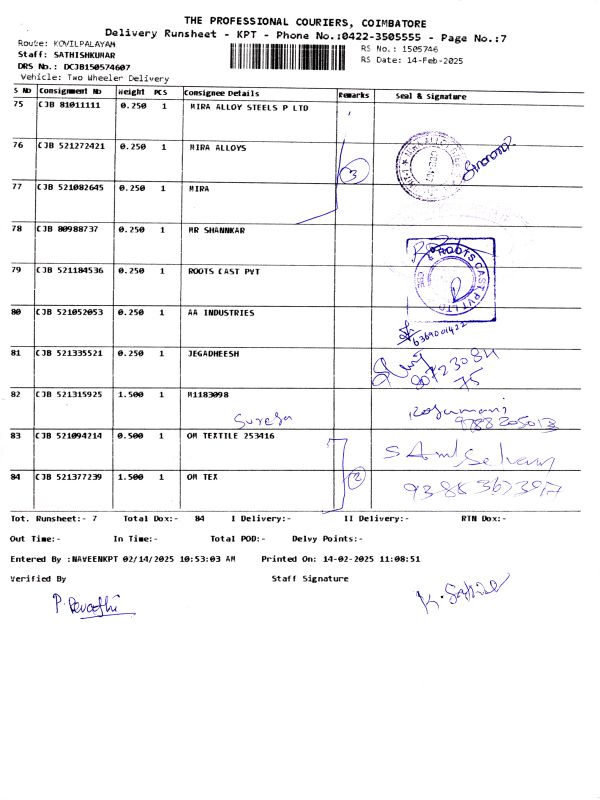 THE PROFESSIONAL COURIERS, COIMBATORE
Delivery Runsheet - KPT - Phone No.:0422-3505555 - Page No.:7
Route: KOVILPALAYAM
RS No.: 1505746
Staff: SATHISHKUMAR
RS Date: 14-Feb-2025
DRS No.: DCJB150574607
Vehicle: Two Wheeler Delivery
S No Consignment No Weight PCS Consignee Details Remarks Seal & Signature
75 CJB 81011111 0.250 1 MIRA ALLOY STEELS P LTD
76 CJB 521272421 0.250 1 MIRA ALLOYS
3
77 CJB 521082645 0.250 1 MIRA
78 CJB 80988737 0.250 1 MR SHANNKAR
79 CJB 521184536 0.250 1 ROOTS CAST PVT
ROOTS CAST PVT LTD
80 CJB 521052053 0.250 1 AA INDUSTRIES
6369001422
81 CJB 521335521 0.250 1 JEGADHEESH
8072308475
82 CJB 521315925 1.500 1 M1183098
Suresh
9788205013
83 CJB 521094214 0.500 1 OM TEXTILE 253416
84 CJB 521377239 1.500 1 OM TEX
2
Tot. Runsheet:- 7 Total Dox:- 84 I Delivery:- II Delivery:- RTN Dox:-
Out Time:- In Time:- Total POD:- Delvy Points:-
Entered By :NAVEENKPT 02/14/2025 10:53:03 AM Printed On: 14-02-2025 11:08:51
Verified By Staff Signature
P. Revathi